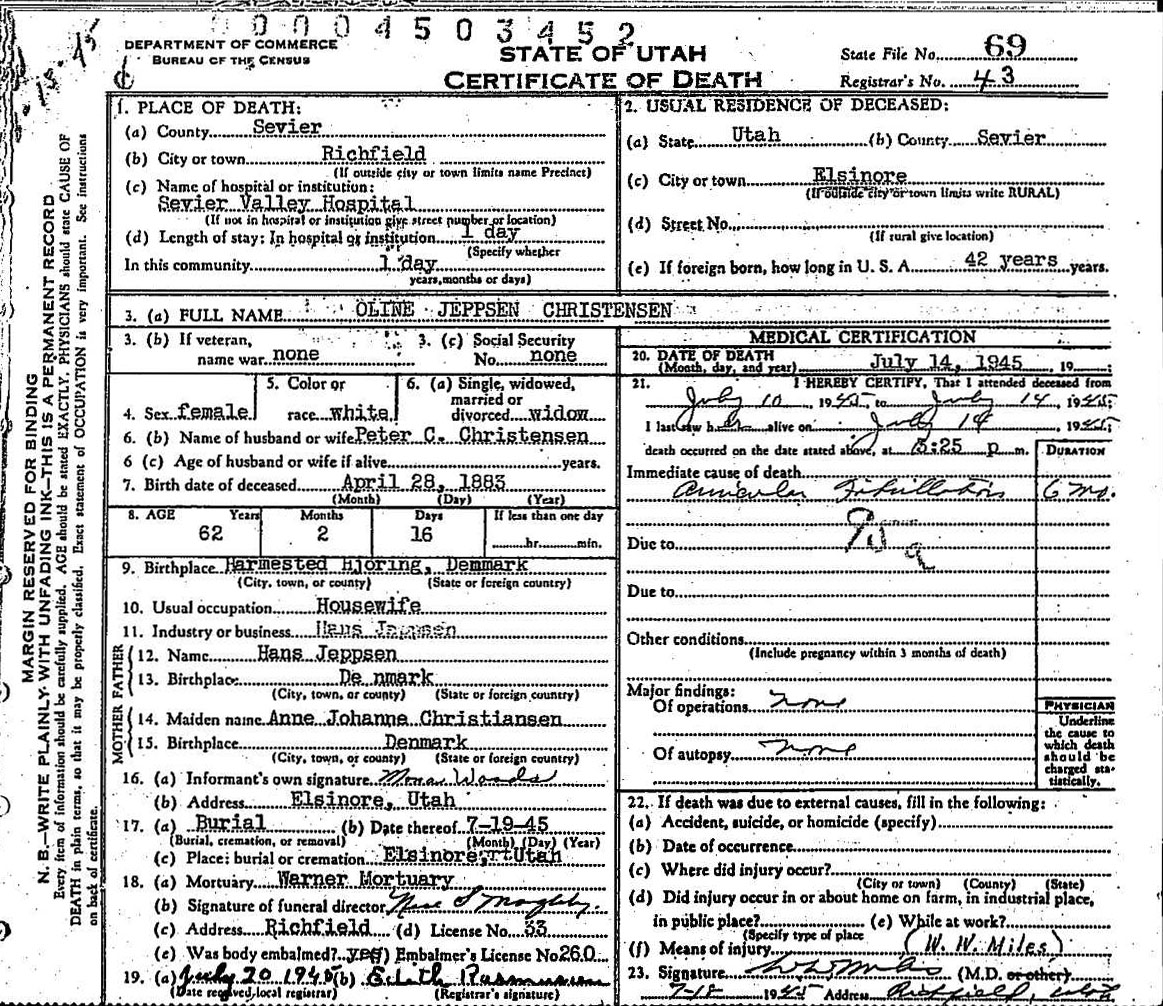 0004503452
DEPARTMENT OF COMMERCE
BUREAU OF THE CENSUS
STATE OF UTAH
CERTIFICATE OF DEATH
State File No. 69
Registrar's No. 43
MARGIN RESERVED FOR BINDING
N. B.—WRITE PLAINLY WITH UNFADING INK—THIS IS A PERMANENT RECORD
Every item of information should be carefully supplied. AGE should be stated EXACTLY. PHYSICIANS should state CAUSE OF
DEATH in plain terms, so that it may be properly classified. Exact statement of OCCUPATION is very important. See instructions
on back of certificate.
1. PLACE OF DEATH:
(a) County Sevier
(b) City or town Richfield
(If outside city or town limits name Precinct)
(c) Name of hospital or institution:
Sevier Valley Hospital
(If not in hospital or institution give street number or location)
(d) Length of stay: In hospital or institution 1 day
(Specify whether
In this community 1 day
years, months or days)
2. USUAL RESIDENCE OF DECEASED:
(a) State Utah (b) County Sevier
(c) City or town Elsinore
(If outside city or town limits write RURAL)
(d) Street No.
(If rural give location)
(e) If foreign born, how long in U. S. A. 42 years years.
3. (a) FULL NAME OLINE JEPPSEN CHRISTENSEN
3. (b) If veteran,
name war none
3. (c) Social Security
No. none
4. Sex female
5. Color or
race white
6. (a) Single, widowed,
married or
divorced widow
6. (b) Name of husband or wife Peter C. Christensen
6 (c) Age of husband or wife if alive years.
7. Birth date of deceased April 28, 1883
(Month) (Day) (Year)
8. AGE Years Months Days If less than one day
62 2 16 hr. min.
9. Birthplace Harmested Hjoring, Denmark
(City, town, or county) (State or foreign country)
10. Usual occupation Housewife
11. Industry or business Hans Jeppsen
FATHER
12. Name Hans Jeppsen
13. Birthplace De nmark
(City, town, or county) (State or foreign country)
MOTHER
14. Maiden name Anne Johanne Christiansen
15. Birthplace Denmark
(City, town, or county) (State or foreign country)
16. (a) Informant's own signature Mona Woods
(b) Address Elsinore, Utah
17. (a) Burial (b) Date thereof 7-19-45
(Burial, cremation, or removal) (Month) (Day) (Year)
(c) Place: burial or cremation Elsinore, Utah
18. (a) Mortuary Warner Mortuary
(b) Signature of funeral director
(c) Address Richfield (d) License No. 33
(e) Was body embalmed? yes) Embalmer's License No 260
19. (a) July 20 1945 (b) Edith Rasmussen
(Date received local registrar) (Registrar's signature)
MEDICAL CERTIFICATION
20. DATE OF DEATH
(Month, day, and year) July 14, 1945 19
21. I HEREBY CERTIFY, That I attended deceased from
July 10, 1945, to July 14, 1945;
I last saw her alive on July 14, 1945;
death occurred on the date stated above, at 5:25 p m.
DURATION
Immediate cause of death
Auricular Fibrillation 6 mo.
Due to
Due to
Other conditions
(Include pregnancy within 3 months of death)
Major findings:
Of operations none
Of autopsy none
PHYSICIAN
Underline
the cause to
which death
should be
charged sta-
tistically.
22. If death was due to external causes, fill in the following:
(a) Accident, suicide, or homicide (specify)
(b) Date of occurrence
(c) Where did injury occur?
(City or town) (County) (State)
(d) Did injury occur in or about home on farm, in industrial place,
in public place? (e) While at work?
(Specify type of place
(f) Means of injury (W. W. Miles)
23. Signature W W Miles (M.D. or other)
7-18 1945 Address Richfield, Utah